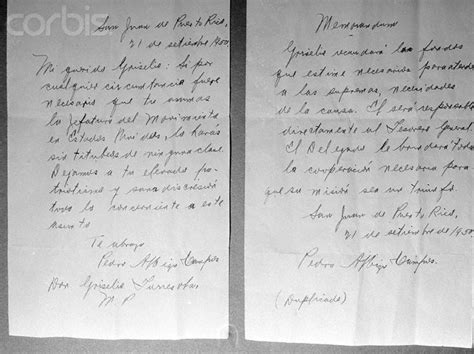 corbis
San Juan de Puerto Rico,
21 de setiembre 1950
Mi querido Griselio: Si por
cualquier circunstancia fuere
necesario que tu asumas
la jefatura del Movimiento
en Estados Unidos, lo harás
sin titubeos de ninguna clase.
Dejamos a tu elevado
patriotismo y sana discreción
todo lo concerniente a este
asunto
Te abraza
Pedro Albizu Campos
Don Griselio Torresola,
N. P.
Memorandum
Griselio recaudará los fondos
que estime necesarios para atender
a las supremas necesidades
de la causa. El será responsable
directamente al Tesorero General.
El Delegado le brindará toda
la cooperación necesaria para
que su misión sea un triunfo.
San Juan de Puerto Rico,
21 de setiembre de 1950.
Pedro Albizu Campos.
(Duplicado)